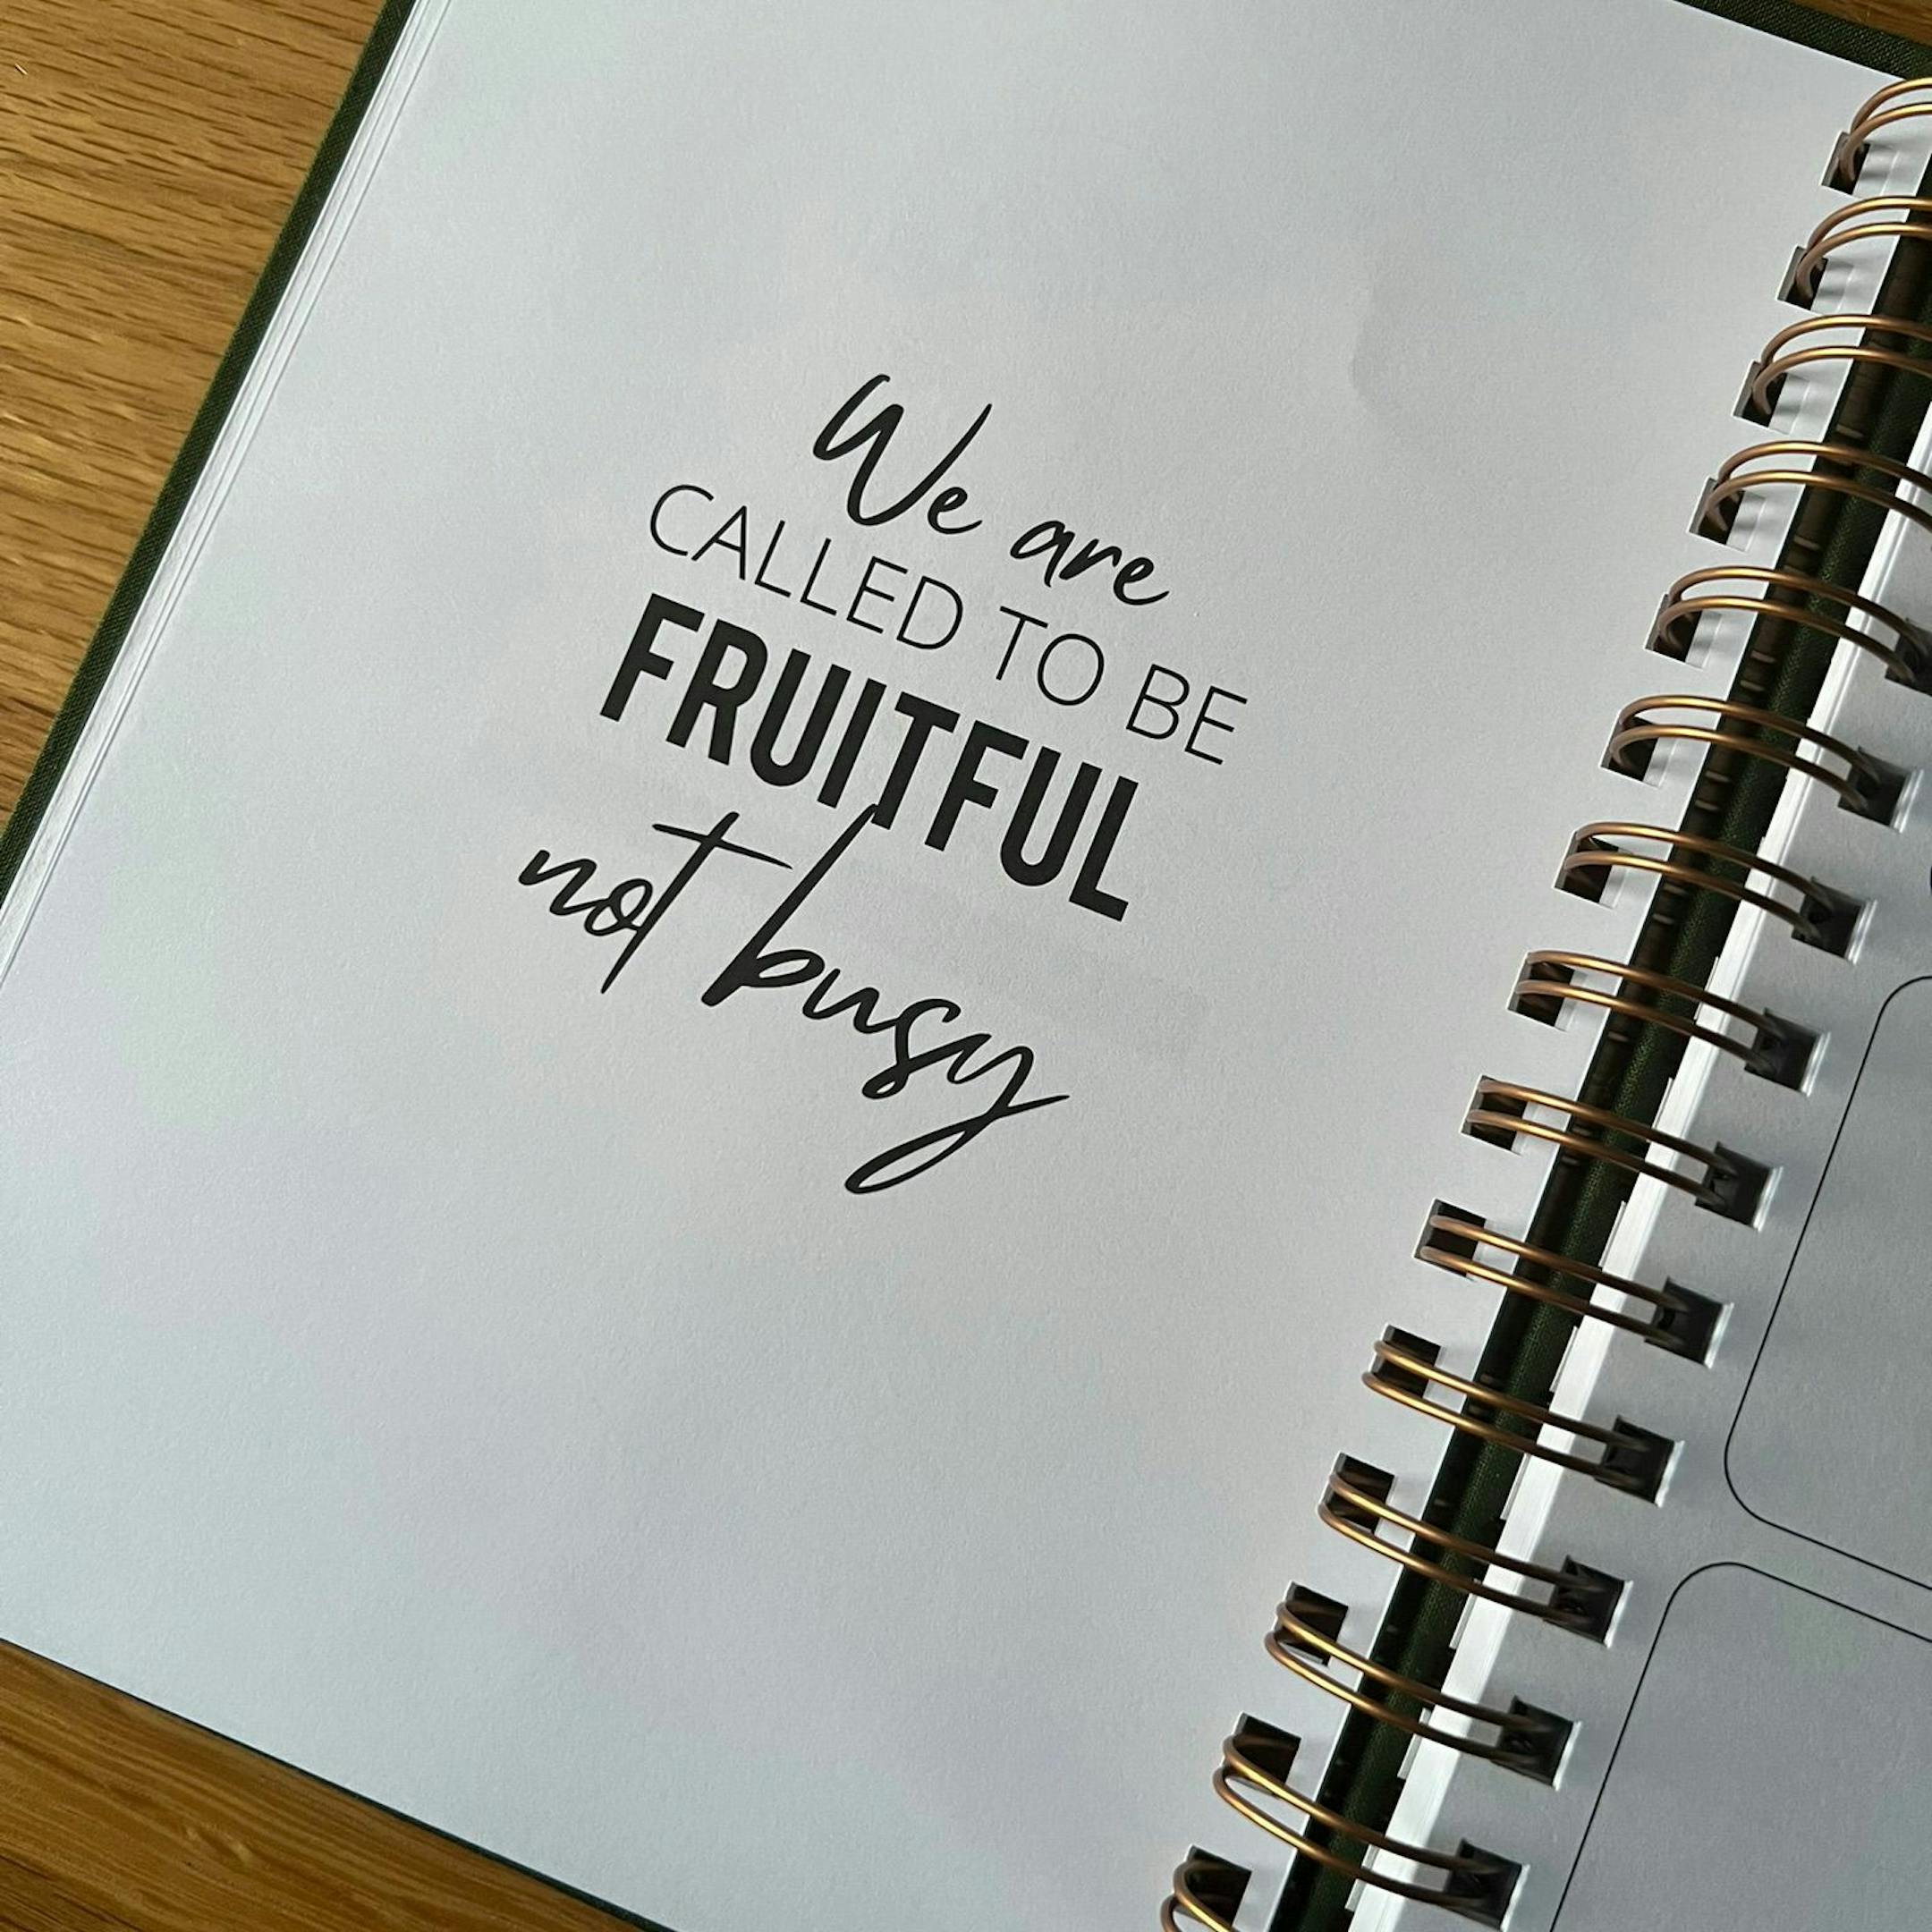 We are
CALLED TO BE
FRUITFUL
not busy